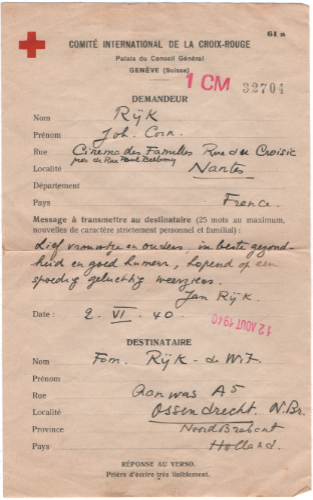 61 a
COMITÉ INTERNATIONAL DE LA CROIX-ROUGE
Palais du Conseil Général
GENÈVE (Suisse)
1 CM 32704
DEMANDEUR
Nom Rÿk
Prénom Joh. Corn.
Rue Cinema des Familles Rue du Croisic
près de Rue Paul Bellamy
Localité Nantes
Département
Pays France.
Message à transmettre au destinataire (25 mots au maximum,
nouvelles de caractère strictement personnel et familial) :
Lief vrouwtje en ouders, in beste gezond-
heid en goed humeur, hopend op een
spoedig gelukkig weerzien.
Jan Rÿk.
Date : 2-VI-40- 12 AOUT 1940
DESTINATAIRE
Nom Fam. Rÿk-de Wit.
Prénom
Rue Aanwas A5
Localité Ossendrecht. N.Br.
Province Noord Brabant
Pays Holland.
RÉPONSE AU VERSO.
Prière d'écrire très lisiblement.